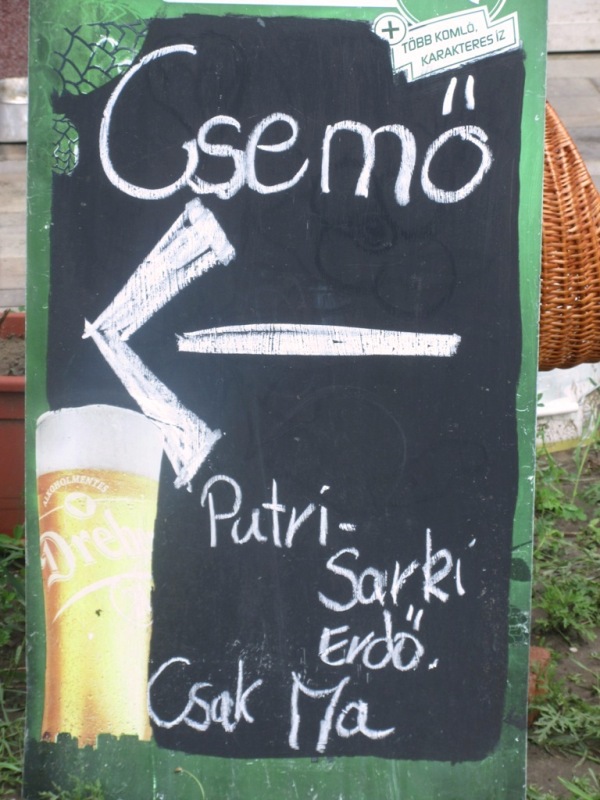 TÖBB KOMLÓ,
KARAKTERES ÍZ
Csemő
Putri-
Sarki
Erdő.
Csak Ma
ALKOHOLMENTES
Dreher